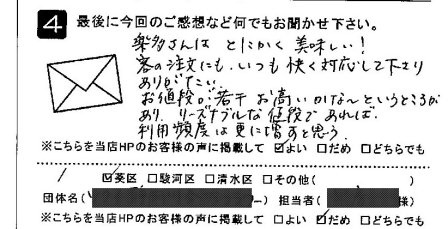 4 最後に今回のご感想など何でもお聞かせ下さい。
楽多さんは とにかく 美味しい!
客の注文にも、いつも 快く対応して下さり
ありがたい。
お値段が若干 お高いかな〜というところが
あり、リーズナブルな値段で あれば、
利用頻度は更に増すと思う。
※こちらを当店HPのお客様の声に掲載して ☑よい □だめ □どちらでも
☑葵区 □駿河区 □清水区 □その他( )
団体名( ー) 担当者( 様)
※こちらを当店HPのお客様の声に掲載して □よい ☑だめ □どちらでも